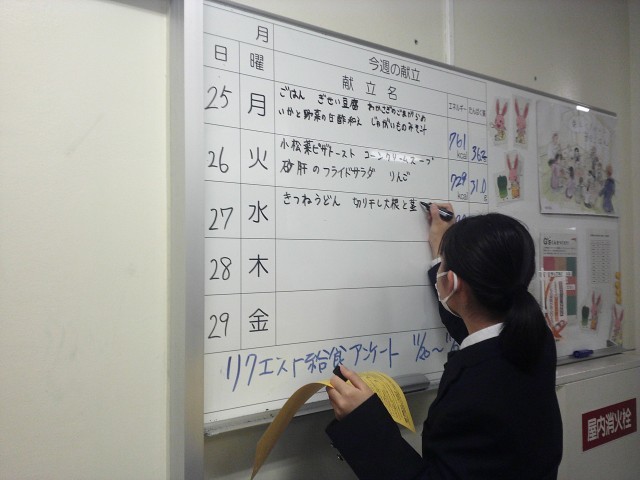 月
今週の献立
日 曜 献立名 エネルギー たんぱく質
25 月 ごはん ぎせい豆腐 わかさぎのごまがらめ
いかと野菜の甘酢和え じゃがいものみそ汁
761 kcal 36.2
26 火 小松菜ピザトースト コーンクリームスープ
砂肝のフライドサラダ りんご
729 kcal 31.0
27 水 きつねうどん 切り干し大根と茎
28 木
29 金
リクエスト給食アンケート 11/20〜
屋内消火栓